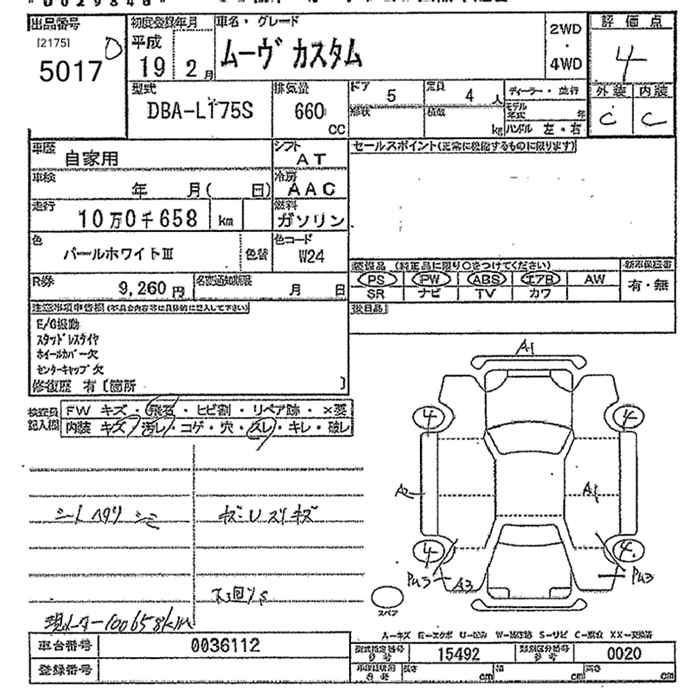 出品番号 初度登録年月 車名・グレード 2WD ・ 4WD 評価点
[2175]
5017 D 平成 19 2月 ムーヴ カスタム 4
型式 排気量 ドア 5 定員 4 人 ディーラー・並行 外装 内装
DBA-L175S 660 CC 形状 積載 kg モデル年式 年 C C
ハンドル 左・右
車歴 自家用 シフト AT セールスポイント(正常に機能するものに限ります)
車検 年 月( 日) 冷房 AAC
走行 10万0千658 km 燃料 ガソリン
色 パールホワイトⅢ 色替 色コード W24
装備品 (純正品に限り○をつけてください) 新車保証書
PS PW ABS エアB AW 有・無
SR ナビ TV カワ
R券 9,260円 名変通知期限 月 日
後日品
注意事項申告欄(不具合内容等は具体的に記入して下さい)
E/G振動
スタッドレスタイヤ
ホイールカバー欠
センターキャップ欠
修復歴 有〔箇所 〕
検査員記入欄 FW キズ・飛石・ヒビ割・リペア跡・×要
内装 キズ・汚レ・コゲ・穴・スレ・キレ・破レ
A1
4 4
A2 A1
4 4
PU3 A3 PU3
シートヘタリ シミ キズ・Uスリキズ
現メーター100658km
スペア
A-キズ E-エクボ U-凹み W-補修跡 S-サビ C-腐食 XX-交換済
車台番号 0036112 型式指定番号 15492 類別区分番号 0020
登録番号 長さ cm 幅 cm 高さ cm